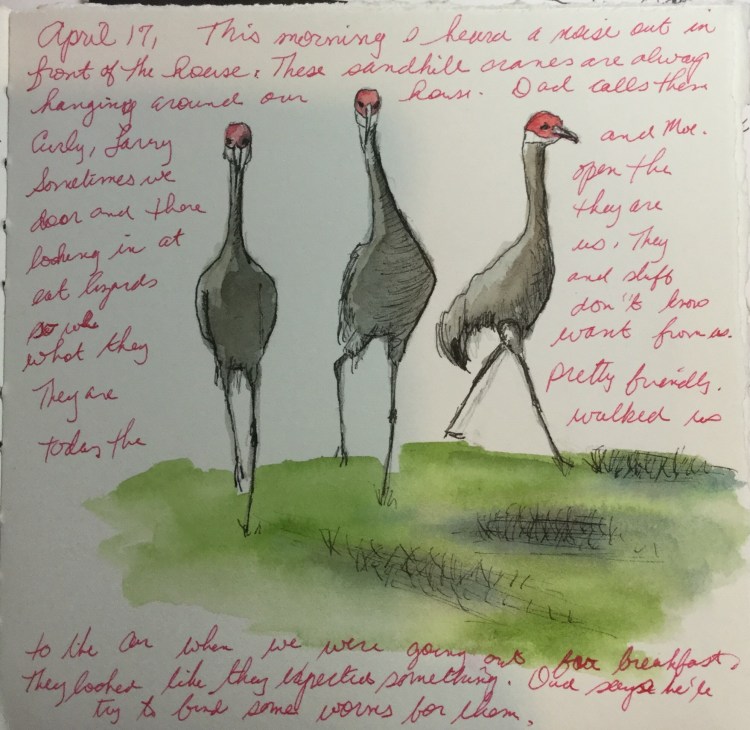 April 17, This morning I heard a noise out in
front of the house. These sandhill cranes are always
hanging around our house. Dad calls them
Curly, Larry and Moe.
Sometimes we open the
door and there they are
looking in at us. They
eat lizards and stuff
so we don't know
what they want from us.
They are pretty friendly.
today the walked us
to the car when we were going out for breakfast.
They looked like they expected something. Dad says he'll
try to find some worms for them.